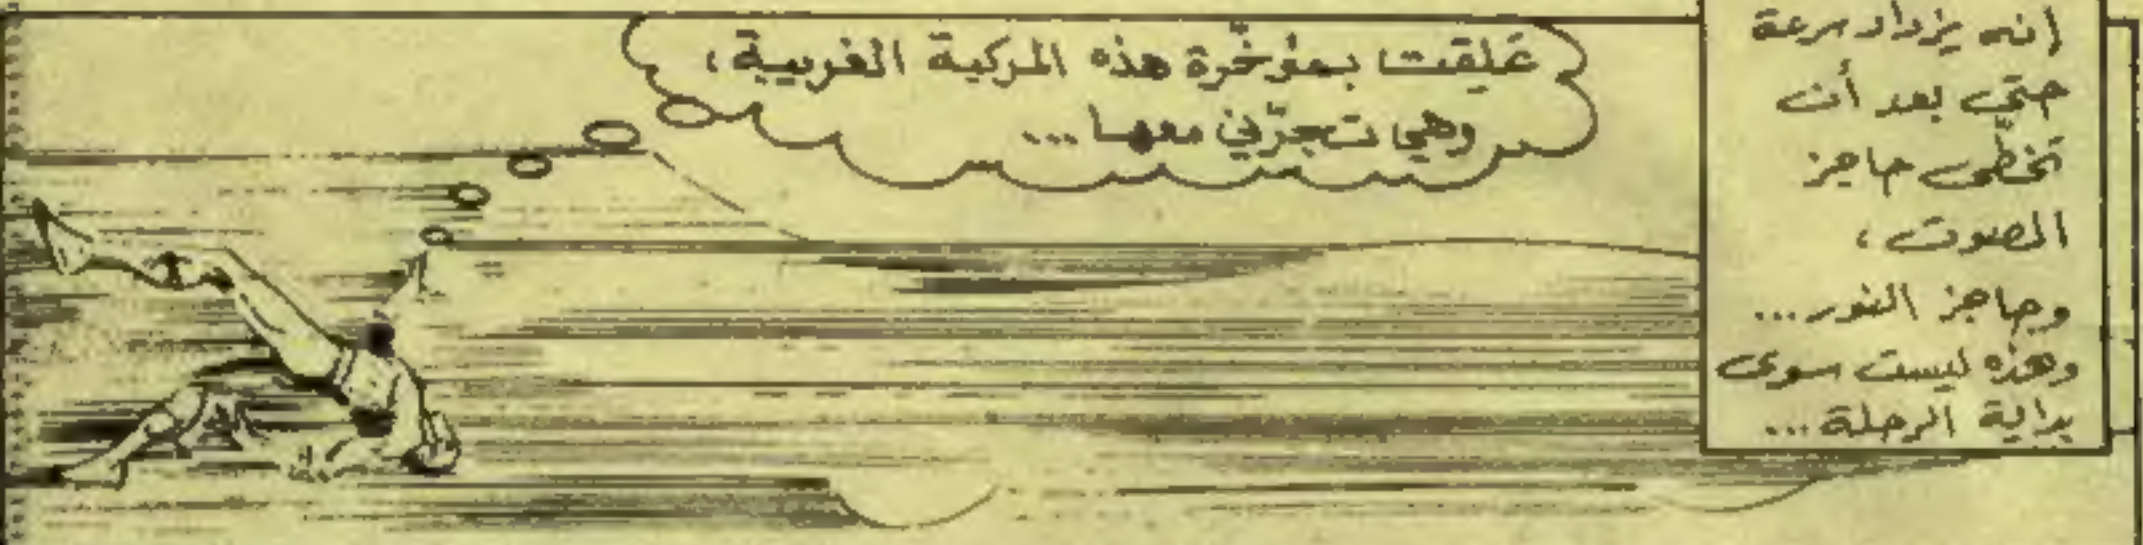 إنه يزداد سرعة
حتى بعد أن
تخطّى حاجز
الصوت،
وحاجز النور...
وهذه ليست سوى
بداية الرحلة...
عَلِقت بمؤخّرة هذه المركبة الغريبة،
وهي تجرّني معها...